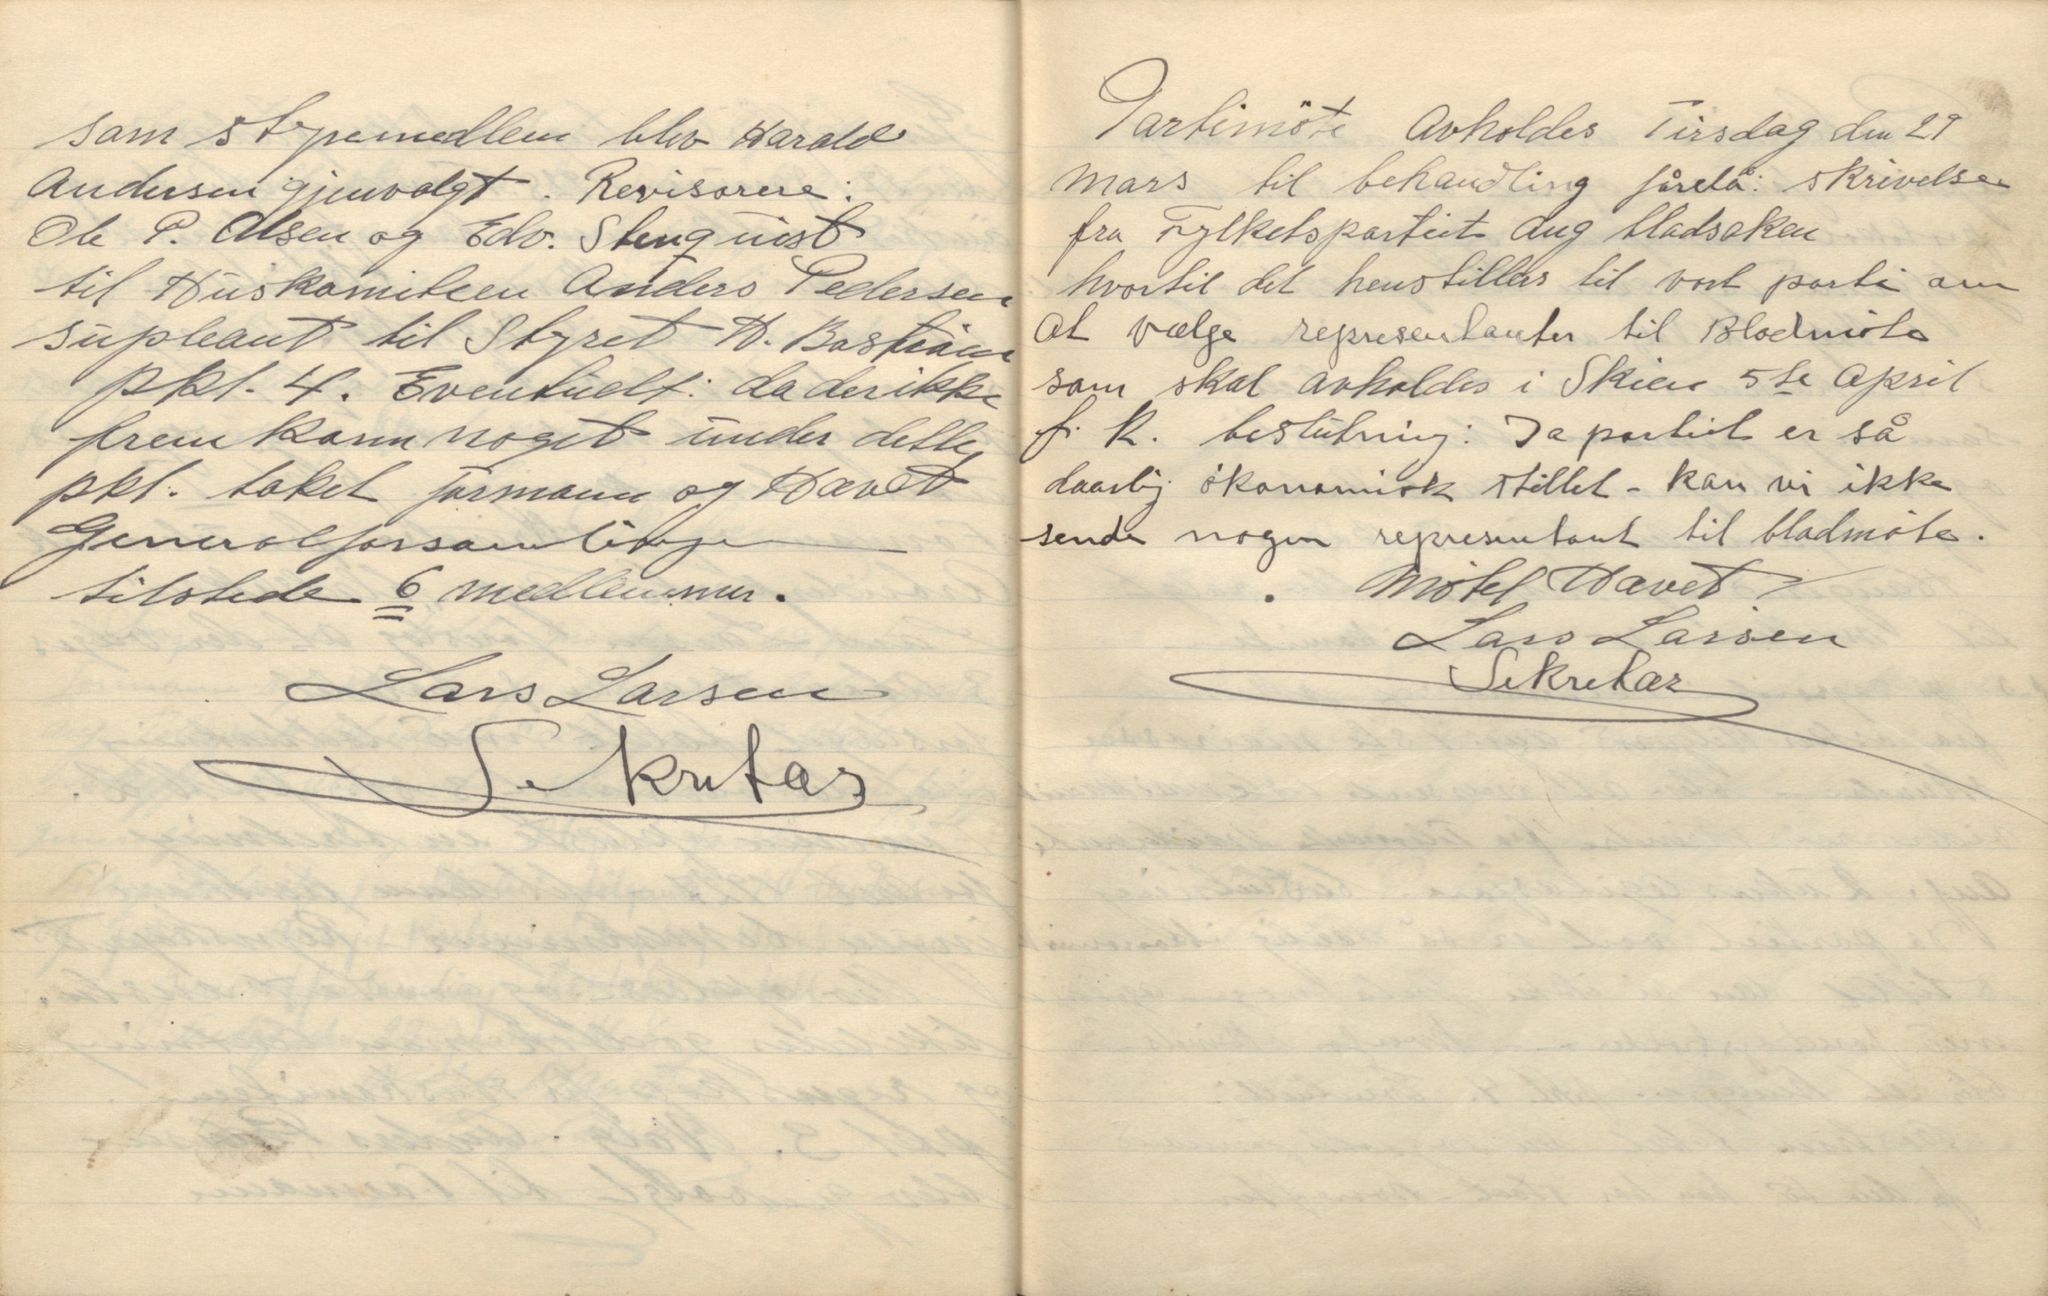 som styremedlem blev Harald
Andersen gjenvalgt. Revisorere:
Ole P. Olsen og Edv. Stenquist
til Huskomiteen Anders Pedersen
supleant til Styret H. Bastian
pkt. 4. Eventuelt: da der ikke
frem kom noget under dette
pkt. taket formann og Hævet
Generalforsamlingen
tilstede 6 medlemmer.
Lars Larsen
Sekretær
Partimöte Avholdes Tirsdag den 29
Mars til behandling forelå: skrivelse
fra Fylketspartiet Ang bladsaken
hvortil det henstilles til vort parti om
At vælge representanter til Bladmöte
som skal avholdes i Skien 5te April
f. k. beslutning: Da partiet er så
daarlig ökonomisk stillet - kan vi ikke
sende nogen representant til bladmöte.
Mötet Hævet
Lars Larsen
Sekretær